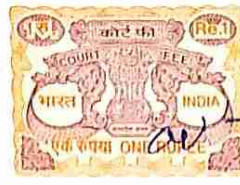 1 रु कोर्ट फी Re.1
COURT FEE
भारत INDIA
एक रुपया ONE RUPEE